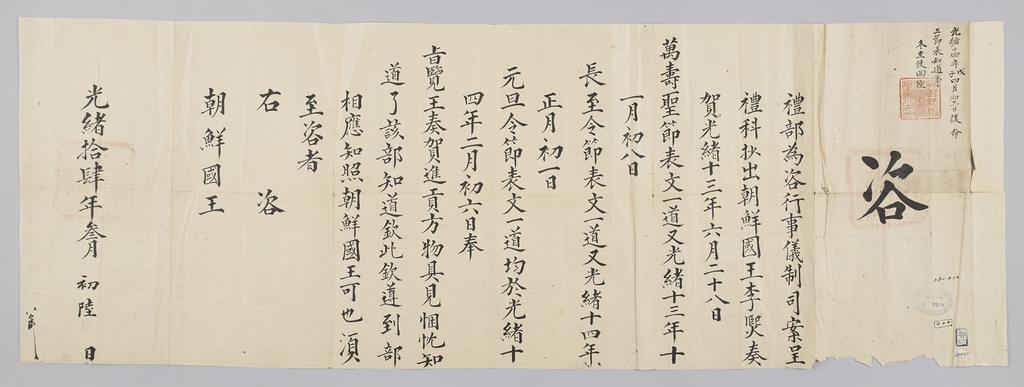 光緒十四年戊子四月初二日復命
三節表知道事
冬至使回啓
咨
禮部為咨行事儀制司案呈
禮科抄出朝鮮國王李㷩奏
賀光緒十三年六月二十八日
萬壽聖節表文一道又光緒十三年十
一月初八日
長至令節表文一道又光緒十四年
正月初一日
元旦令節表文一道均於光緒十
四年二月初六日奉
旨覽王奏賀進貢方物具見悃忱知
道了該部知道欽此欽遵到部
相應知照朝鮮國王可也須
至咨者
右咨
朝鮮國王
光緒拾肆年叄月初陸日